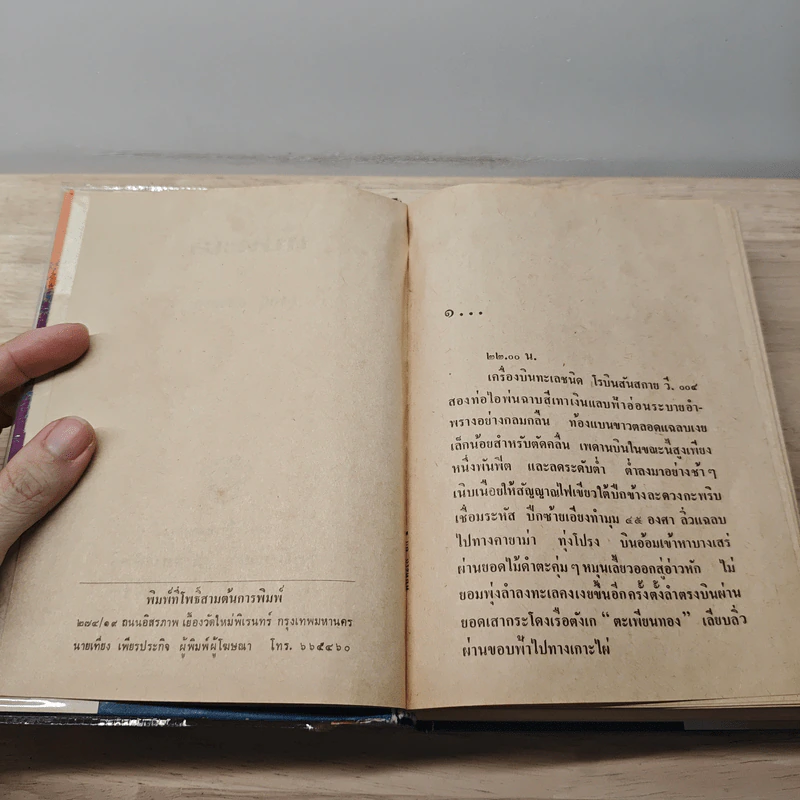 พิมพ์ที่โพธิ์สามต้นการพิมพ์
๒๗๔/๑๙ ถนนอิสรภาพ เยื้องวัดใหม่พิเรนทร์ กรุงเทพมหานคร
นายเที่ยง เพียรประกิจ ผู้พิมพ์ผู้โฆษณา โทร. ๖๖๕๔๖๐
๑...
๒๒.๐๐ น.
เครื่องบินทะเลชนิด โรบินสันสกาย วี. ๐๐๔
สองท่อไอพ่นฉาบสีเทาเงินแลบฟ้าอ่อนระบายอำ-
พรางอย่างกลมกลืน ท้องแบนขาวตลอดแฉลบเงย
เล็กน้อยสำหรับตัดคลื่น เพดานบินในขณะนี้สูงเพียง
หนึ่งพันฟีต และลดระดับต่ำ ต่ำลงมาอย่างช้า ๆ
เนิบเนือยให้สัญญาณไฟเขียวใต้ปีกข้างละดวงกะพริบ
เชื่อมระหัส ปีกซ้ายเอียงทำมุม ๔๕ องศา ลิ่วแฉลบ
ไปทางคายาม่า ทุ่งโปรง บินอ้อมเข้าหาบางเสร่
ผ่านยอดไม้ดำตะคุ่ม ๆ หมุนเลี้ยวออกสู่อ่าวหัก ไม่
ยอมพุ่งลำลงทะเลคงเงยขึ้นอีกครั้งตั้งลำตรงบินผ่าน
ยอดเสากระโดงเรือตังเก “ตะเพียนทอง” เลียบลิ่ว
ผ่านขอบฟ้าไปทางเกาะไผ่